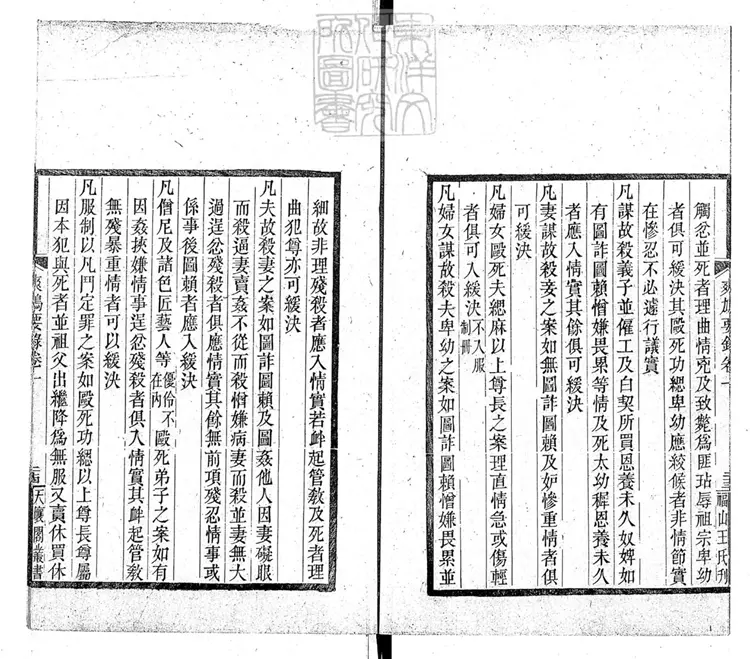 東洋文
化研究
所圖書
爽鳩要錄卷一 二三 福山王氏刊
觸忿並死者理曲情兇及致斃爲匪玷辱祖宗卑幼
者俱可緩決其毆死功緦卑幼應絞候者非情節實
在慘忍不必遽行議實
凡謀故殺義子並僱工及白契所買恩養未久奴婢如
有圖詐圖賴憎嫌畏累等情及死太幼穉恩養未久
者應入情實其餘俱可緩決
凡妻謀故殺妾之案如無圖詐圖賴及妒慘重情者俱
可緩決
凡婦女毆死夫緦麻以上尊長之案理直情急或傷輕
者俱可入緩決不入服制冊
凡婦女謀故殺夫卑幼之案如圖詐圖賴憎嫌畏累並
細故非理殘殺者應入情實若衅起管教及死者理
曲犯尊亦可緩決
凡夫故殺妻之案如圖詐圖賴及圖姦他人因妻礙眼
而殺逼妻賣姦不從而殺憎嫌病妻而殺並妻無大
過逞忿殘殺者俱應情實其餘無前項殘忍情事或
係事後圖賴者應入緩決
凡僧尼及諸色匠藝人等優伶不在內毆死弟子之案如有
因姦挾嫌情事逞忿殘殺者俱入情實其衅起管教
無殘暴重情者可以緩決
凡服制以凡鬥定罪之案如毆死功緦以上尊長尊屬
因本犯與死者並祖父出繼降爲無服又賣休買休
爽鳩要錄卷一 天壤閣叢書